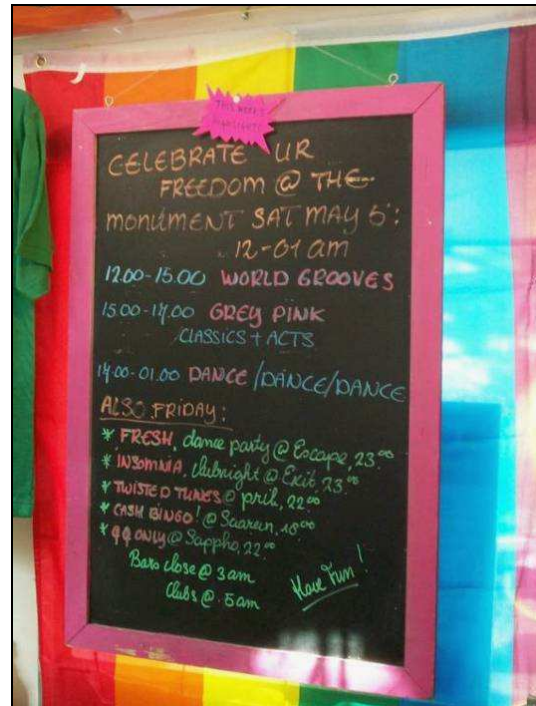 THIS WEEK'S
HIGHLIGHTS
CELEBRATE UR
FREEDOM @ THE
monument SAT MAY 5:
12-01 am
12.00-15.00 WORLD GROOVES
15.00-17.00 GREY PINK
CLASSICS + ACTS
17.00-01.00 DANCE/DANCE/DANCE
ALSO FRIDAY:
* FRESH, dance party @ Escape, 23.00
* INSOMNIA, clubnight @ Exit, 23.00
* TWISTED TUNES @ prik, 22.00
* CASH BINGO! @ Saarein, 18.00
* ♀♀ ONLY @ Sappho, 22.00
Bars close @ 3am
Clubs @ 5am
Have Fun!